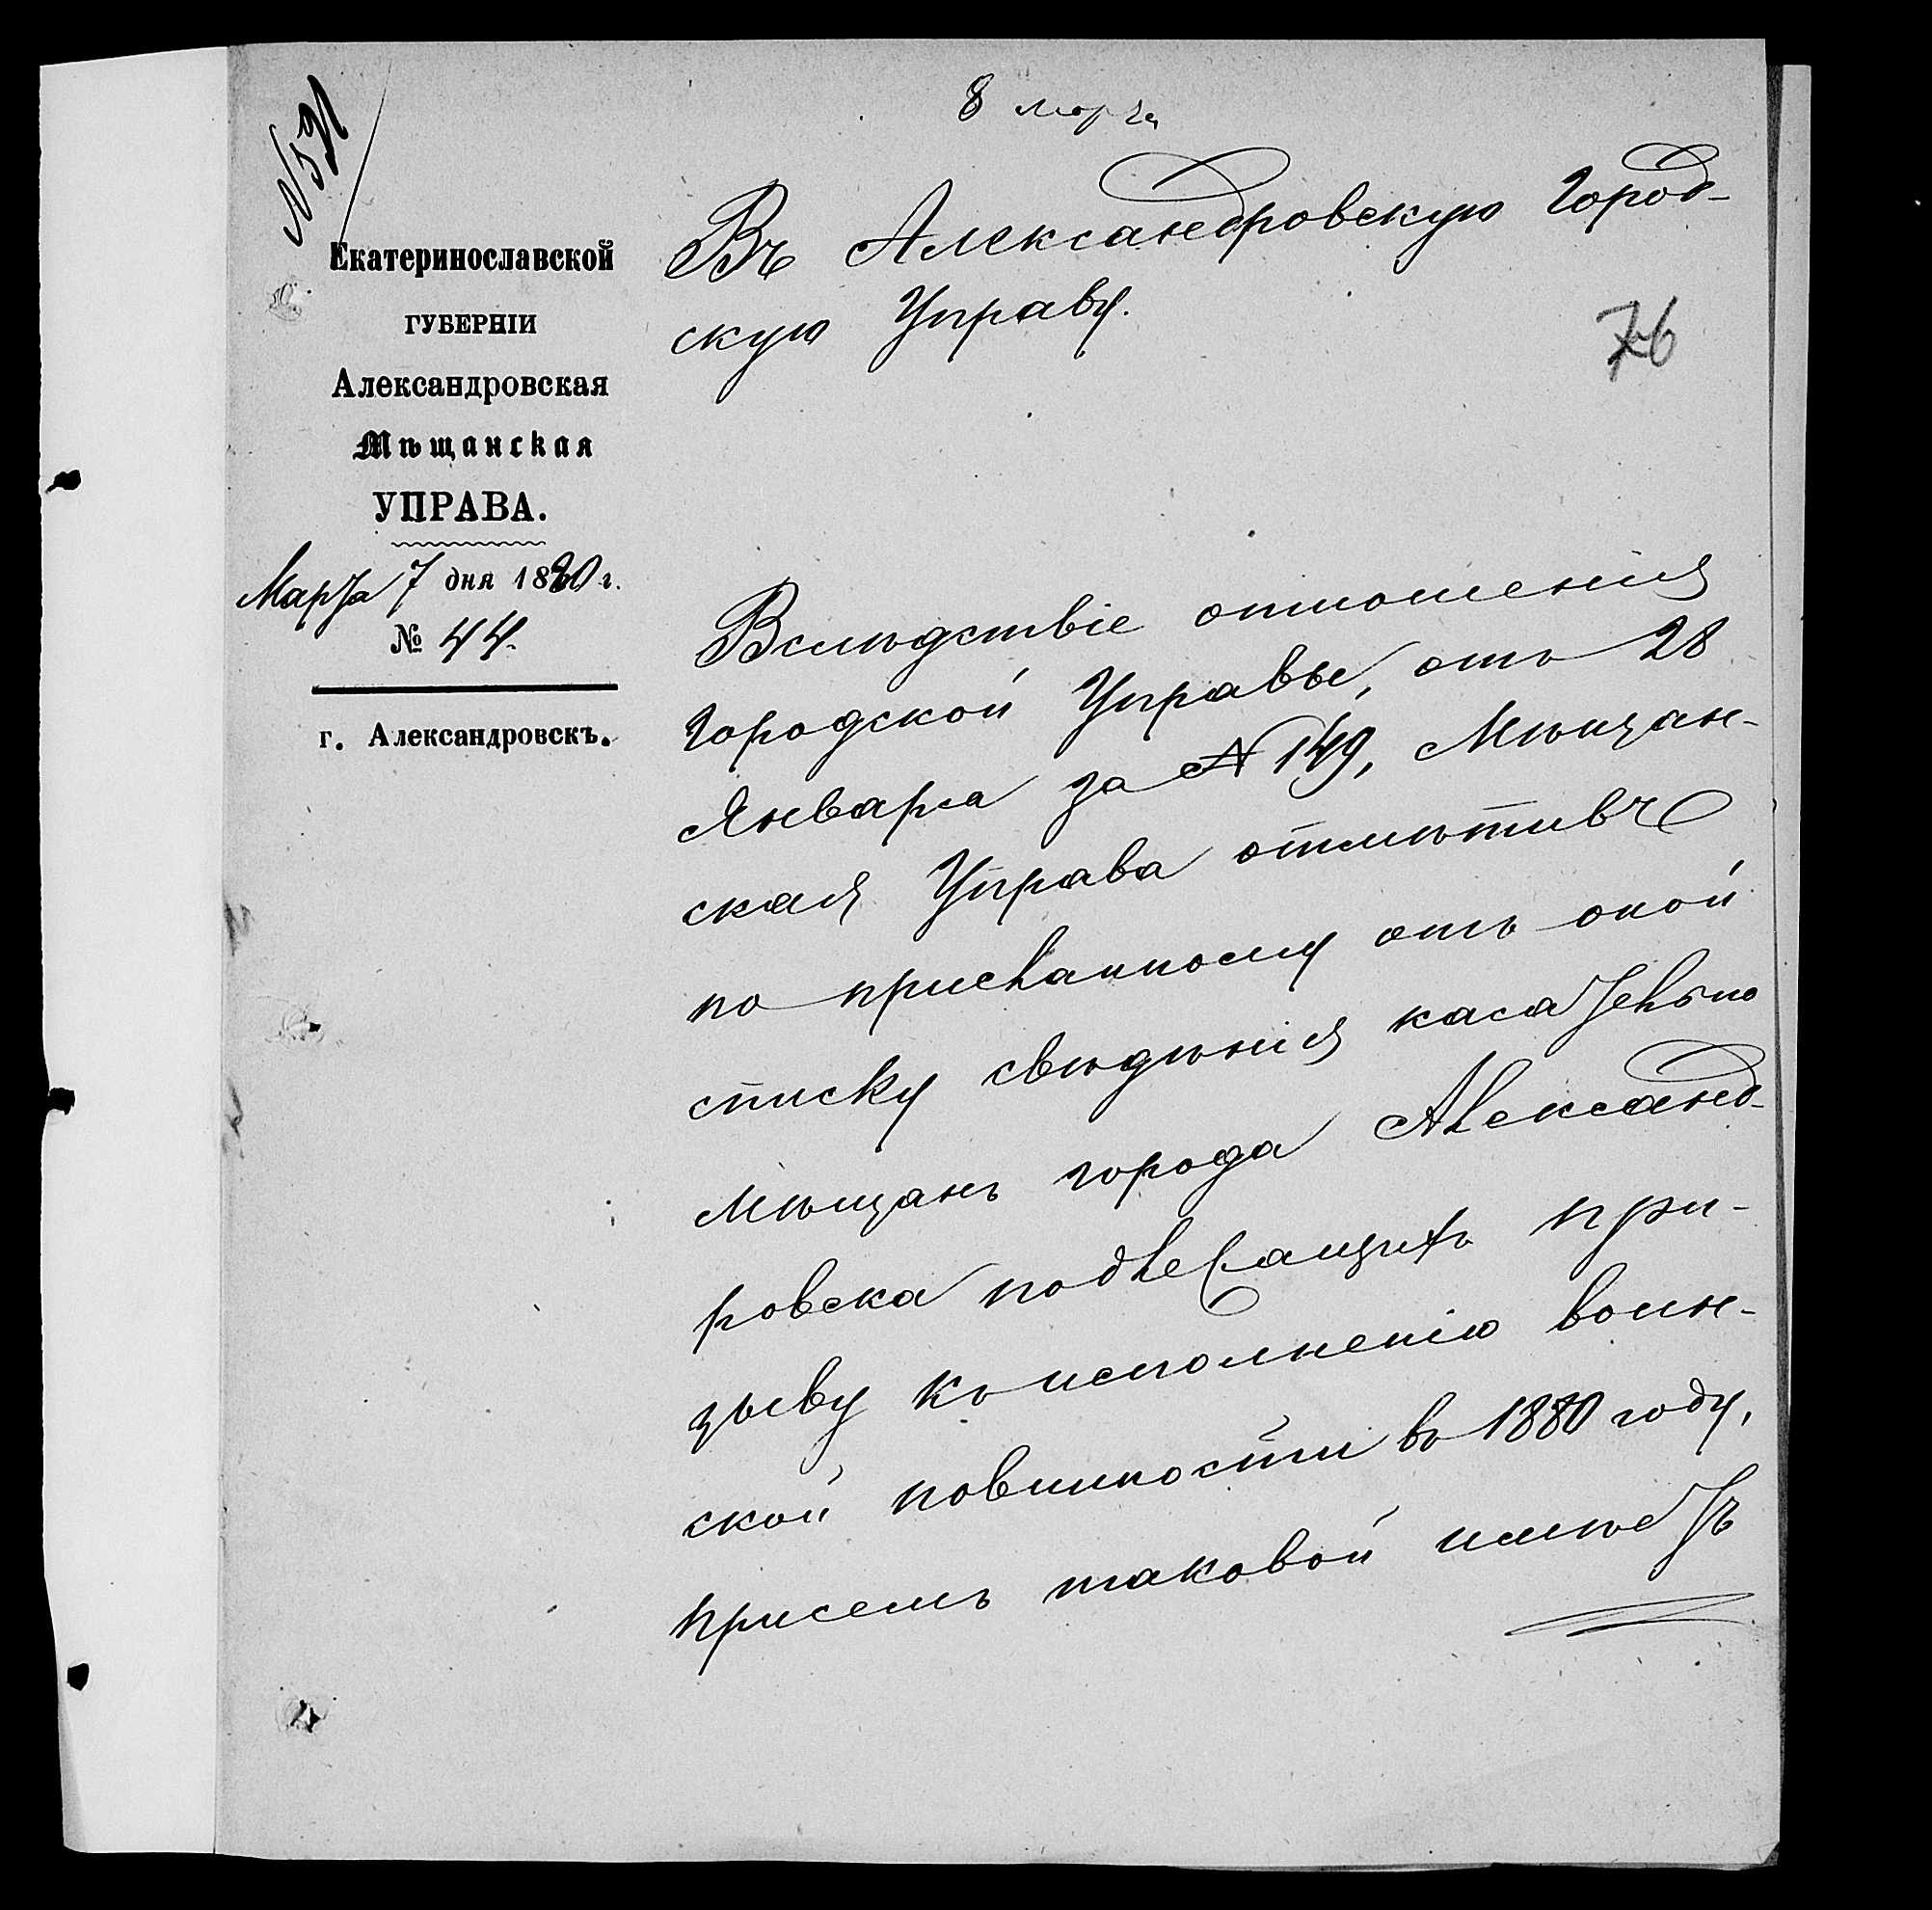 8 марта
№ 591
Екатеринославской
ГУБЕРНІИ
Александровская
Мѣщанская
УПРАВА.
Марта 7 дня 1880 г.
№ 44.
г. Александровскъ.
Въ Александровскую Город-
скую Управу.
76
Вслѣдствіе отношенія
Городской Управы, отъ 28
Января за № 149, Мѣщан-
ская Управа отмѣтивъ
по присланному отъ оной
списку свѣдѣнія касательно
мѣщанъ города Александ-
ровска подлежащихъ при-
зыву къ исполненію воин-
ской повинности въ 1880 году,
присемъ таковой имѣетъ